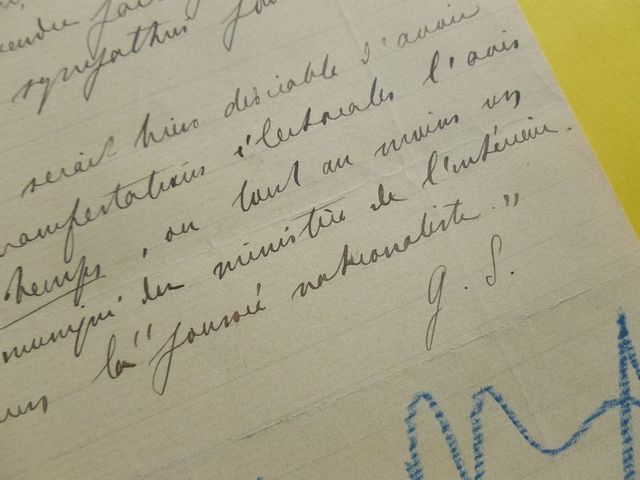 sympathies
serait bien desirable d'avoir
manifestations électorales l'avis
temps, ou tout au moins un
muniqué du ministère de l'intérieur.
la "journée nationaliste."
G. S.